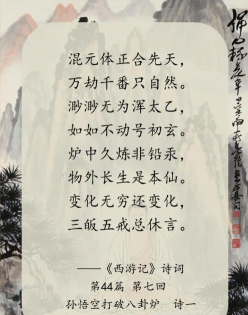 混元体正合先天，
万劫千番只自然。
渺渺无为浑太乙，
如如不动号初玄。
炉中久炼非铅汞，
物外长生是本仙。
变化无穷还变化，
三皈五戒总休言。
——《西游记》诗词
第44篇 第七回
孙悟空打破八卦炉 诗一